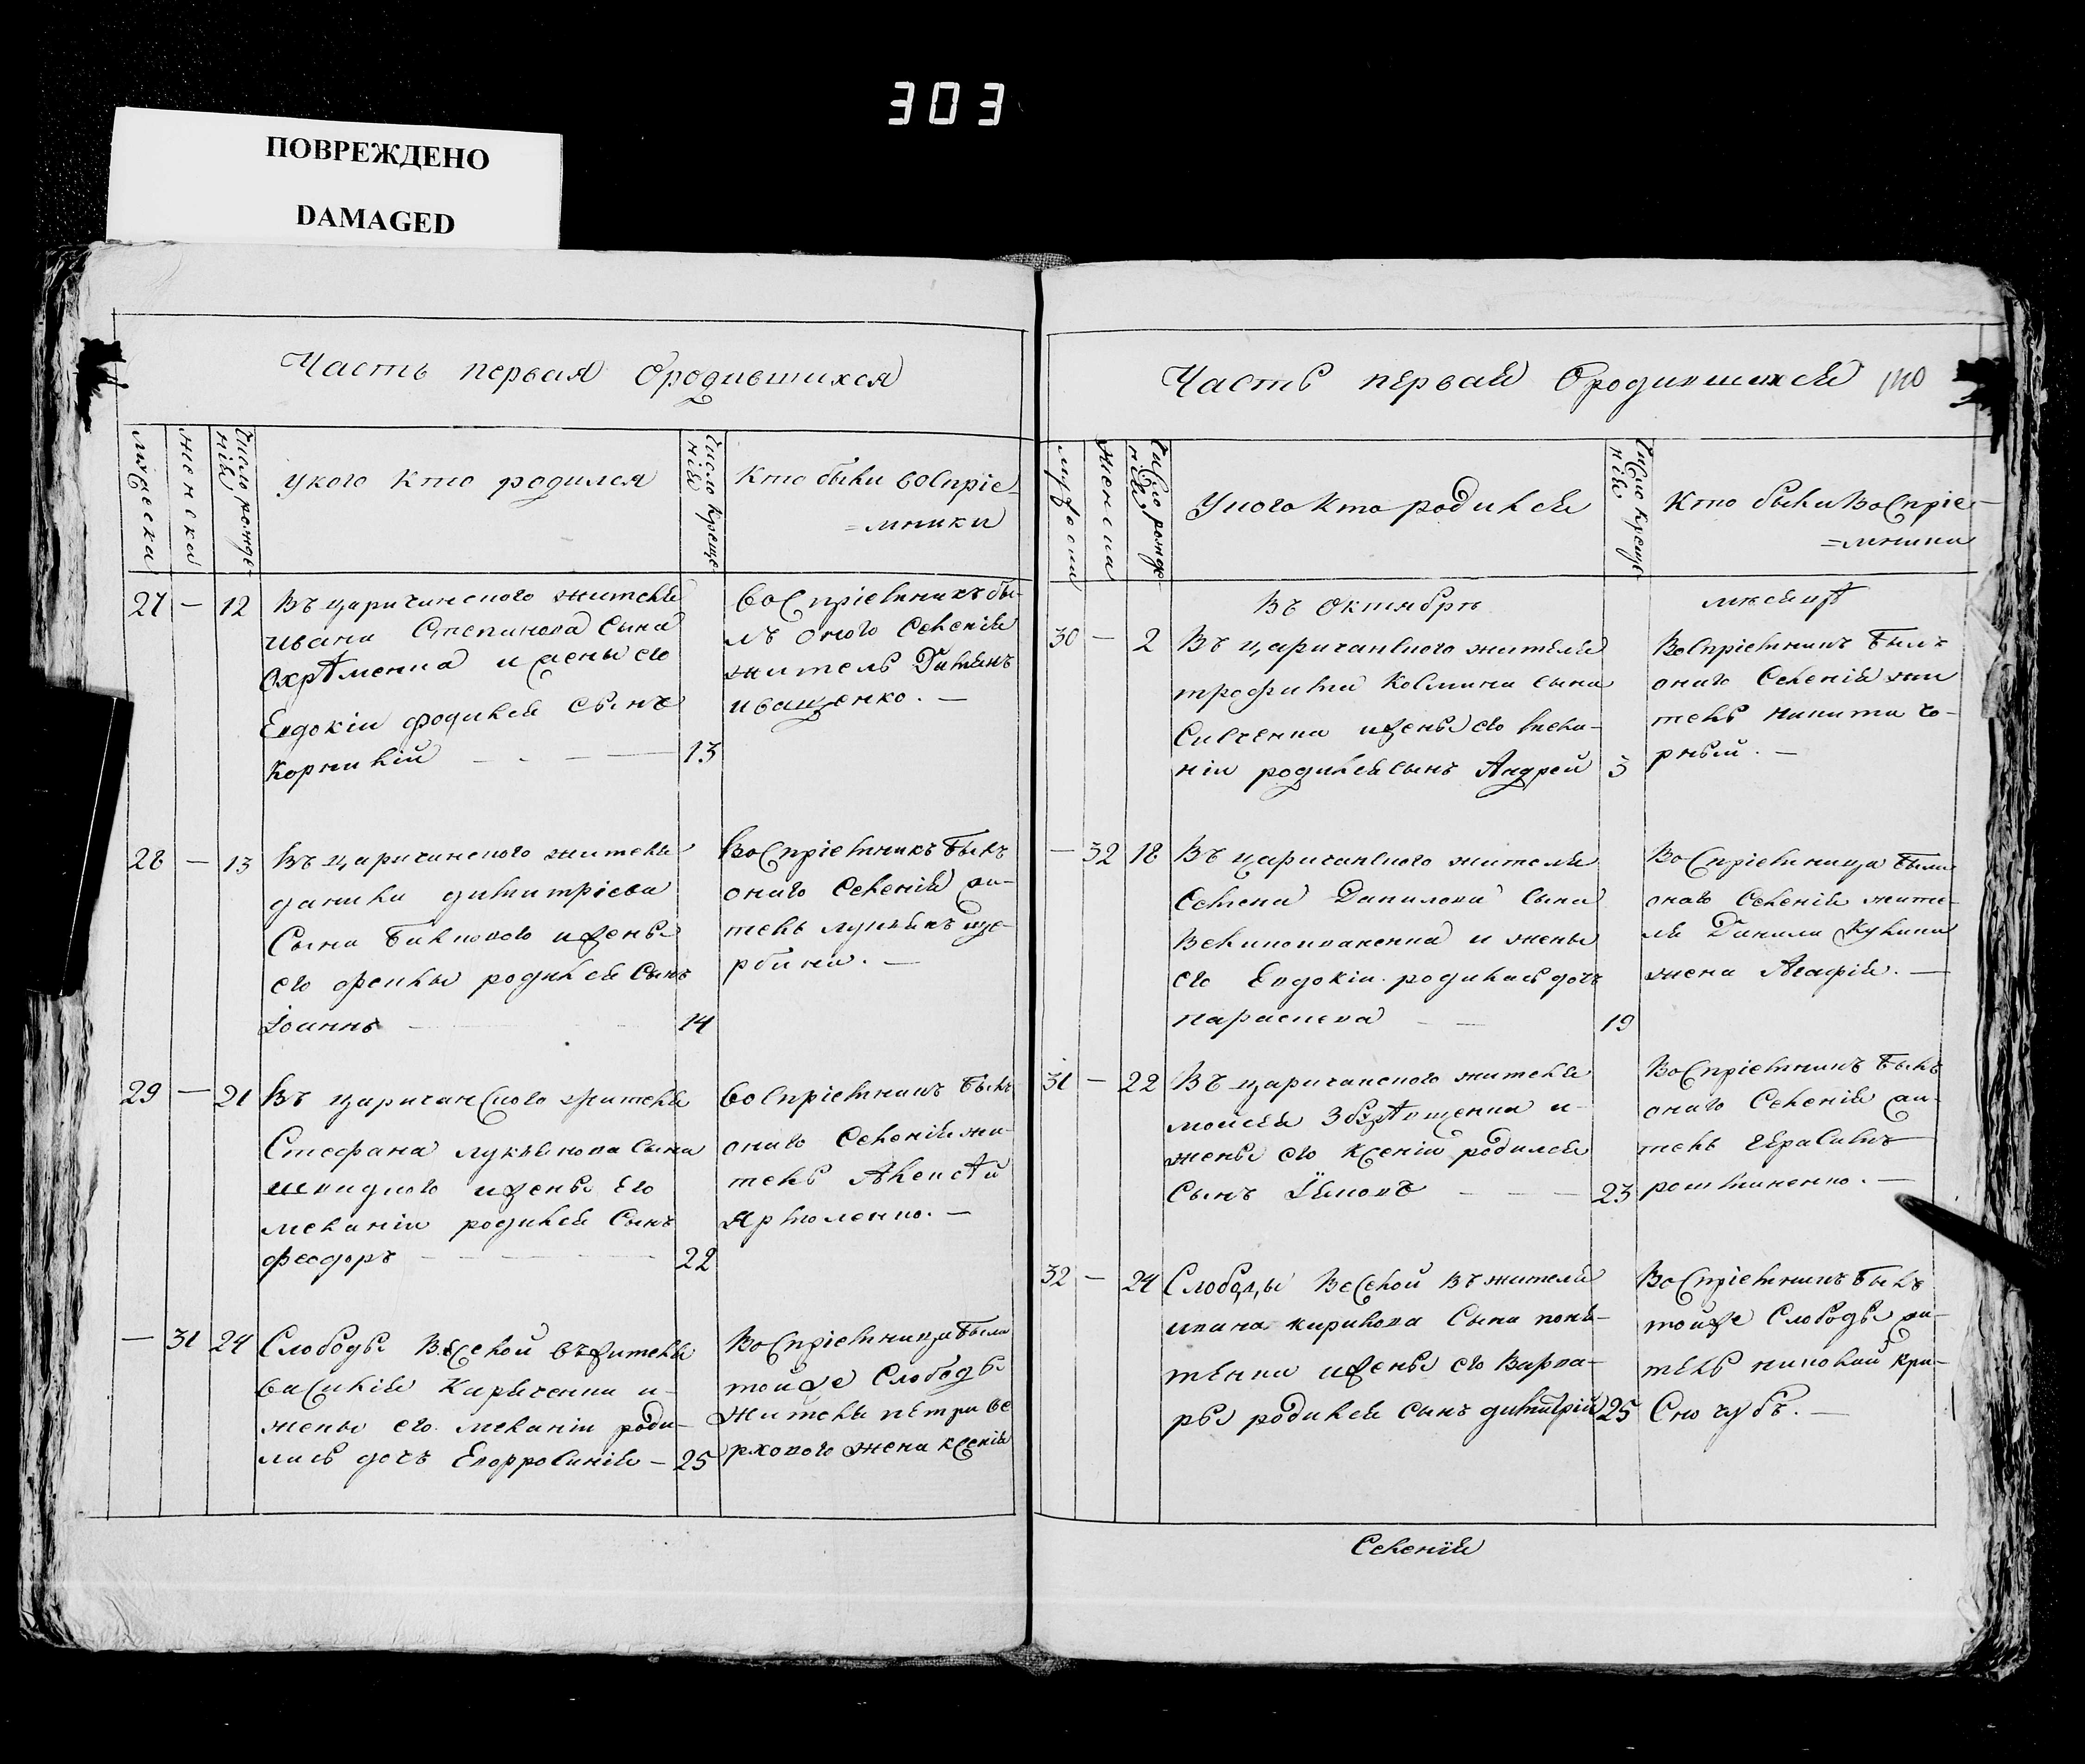 303
ПОВРЕЖДЕНО
DAMAGED
Часть первая Ородившихся
мужеска
женска
Число рожде-
нія
укого кто родился
Число креще-
нія
Кто были воспріе-
=мники
27 — 12 Въ царичанского жителя
ивана Степанова Сына
Охрѣменка и жены его
Евдокіи родился сынъ
Корнилій — 13
воспріемникъ бы-
лъ оного Селенія
житель Димянъ
иващенко. —
28 — 13 Въ царичанского жителя
данила димитріева
Сына Билового ижены
его феклы родился Сынъ
Іоаннъ — 14
Воспріемникъ былъ
онаго Селенія жи-
тель лукьянъ ще-
рбина. —
29 — 21 Въ царичанского жителя
Стефана лукьянова Сына
швидкого ижены Его
меланіи родился Сынъ
феодоръ — 22
воспріемникъ былъ
онаго Селенія жи-
тель Алексѣй
Ярмоленко. —
— 31 24 Слободы Веселой въжителя
василія Кириченка и
жены его меланіи роди-
лась дочъ Евфросинія — 25
Воспріемница была
тойже Слободы
Жителя петра Ве
рхового жена ксенія
Часть первая Ородившихся 110
мужеска
женска
Число рожде-
нія
Укого кто родился
Число креще-
нія
Кто были Воспріе-
=мники
Въ Октябрѣ мѣсяцѣ
30 — 2 Въ царичанского жителя
трофима Космина сына
Сивченка ижены его
родился сынъ Андрей 3
Воспріемникъ былъ
онаго Селенія жи
тель никита чо-
рный. —
— 32 18 Въ царичанского жителя
Семена Данилова Сына
и жены
его Евдокіи родилась дочъ
параскева — 19
Воспріемница была
онаго Селенія жите-
ля Данила Кулика
жена Агафія. —
31 — 22 Въ царичанского жителя
моисея и
жены его Ксеніи родился
Сынъ Іяковъ — 23
Воспріемникъ былъ
онаго Селенія жи-
тель герасимъ
32 — 24 Слободы Веселой Въжителя
ивана кирилова Сына
ижены его Варва-
ры родился сынъ димитрій 25
Воспріемникъ былъ
тойже Слободы жи-
тель николай кри-
Сючубъ. —
Селенія